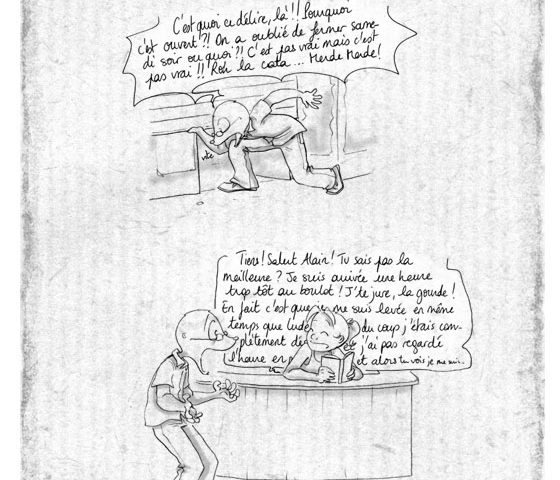 C'est quoi ce délire, là !! Pourquoi
c'est ouvert ?! On a oublié de fermer same-
di soir ou quoi ?! C'est pas vrai mais c'est
pas vrai !! Roh la cata ... Merde Merde !
Tiens ! Salut Alain ! Tu sais pas la
meilleure ? Je suis arrivée une heure
trop tôt au boulot ! J'te jure, la gourde !
En fait c'est que je me suis levée en même
temps que du coup j'étais com-
plètement j'ai pas regardé
l'heure en et alors tu vois je me suis..